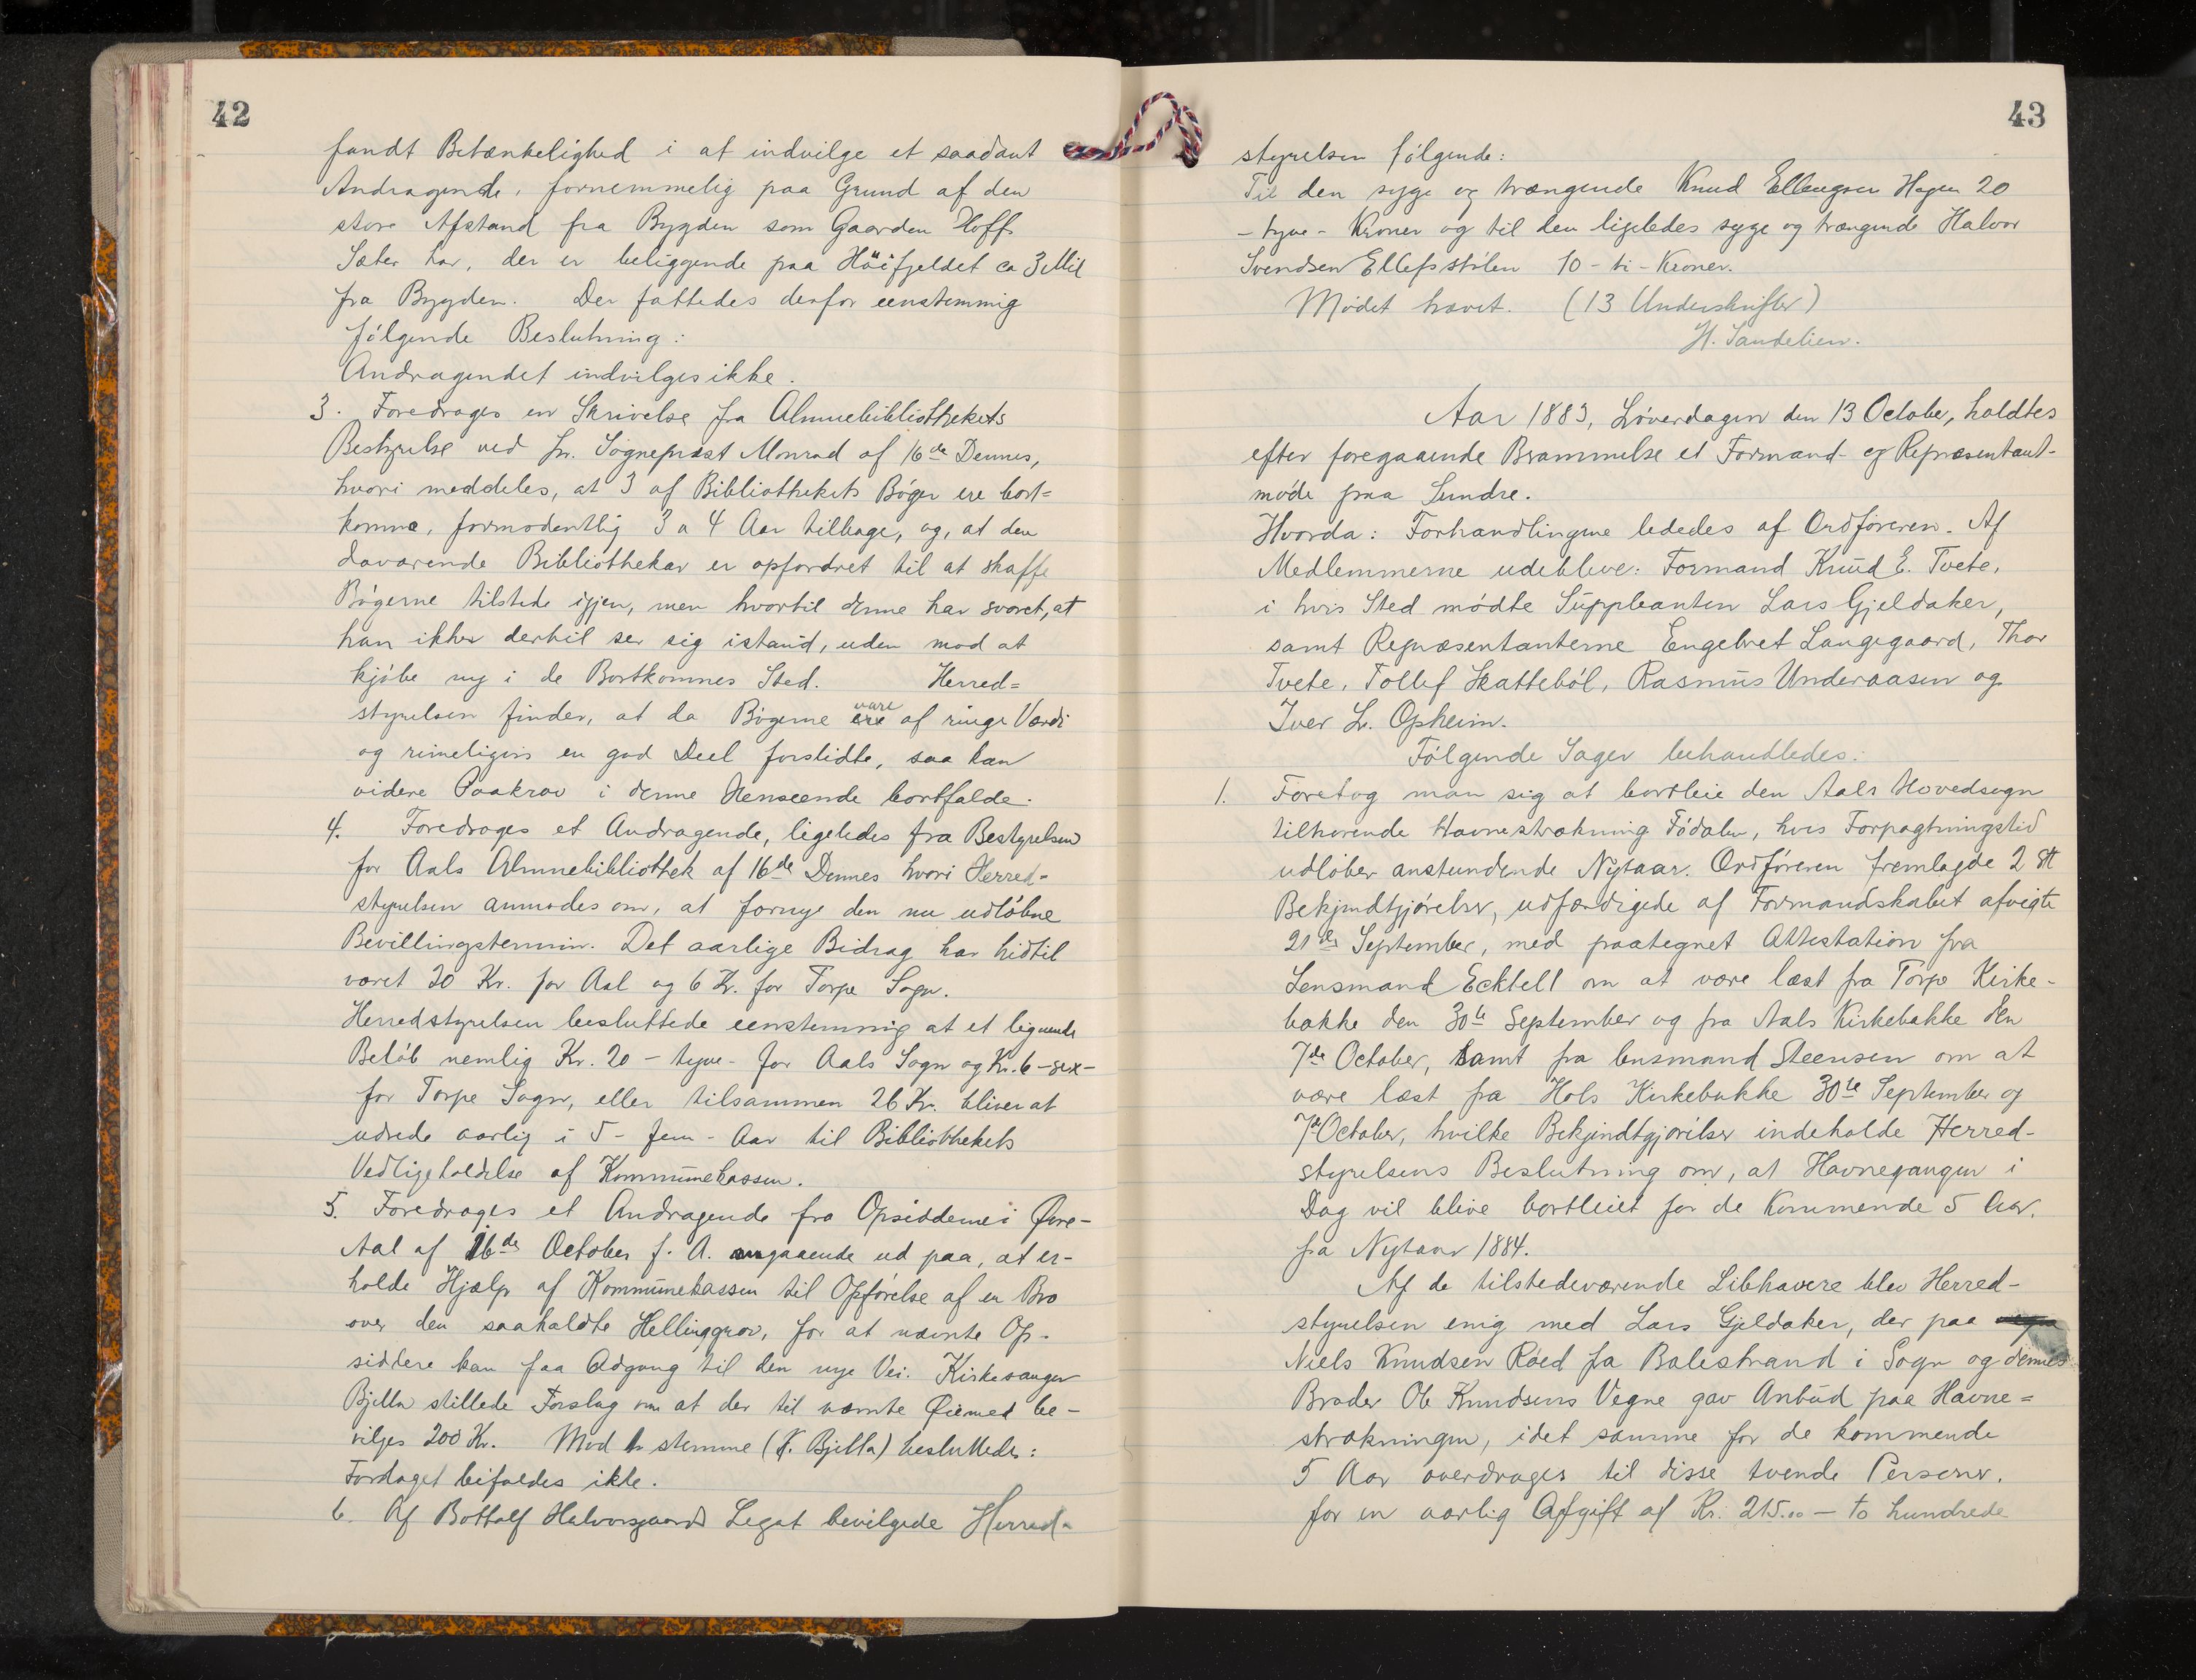 42
fandt Betænkelighed i at indvilge et saadant
Andragende, fornemmelig paa Grund af den
store Afstand fra Bygden som Gaarden Hoff
Sæter har, der er beliggende paa Höifjeldet ca 3 Mil
fra Bygden. Der fattedes derfor eenstemmig
følgende Beslutning:
Andragendet indvilges ikke.
3. Foredrages en Skrivelse fra Almuebibliothekets
Bestyrelse ved Hr. Sognepræst Monrad af 16de Dennes,
hvori meddeles, at 3 af Bibliothekets Bøger ere bort=
komne, formodentlig 3 a 4 Aar tilbage, og, at den
daværende Bibliothekar er opfordret til at skaffe
Bøgerne tilstede igjen, men hvortil denne har svaret, at
han ikke dertil ser sig istand, uden mod at
kjøbe ny i de Bortkomnes Sted. Herred=
styrelsen finder, at da Bøgerne vare af ringe Værdi
og rimeligvis en god Deel forslidte, saa kan
videre Paakrav i denne Henseende bortfalde.
4. Foredroges et Andragende, ligeledes fra Bestyrelsen
for Aals Almuebibliothek af 16de Dennes hvori Herred-
styrelsen anmodes om, at fornye den nu udløbne
Bevillingstermin. Det aarlige Bidrag har hidtil
været 20 Kr. for Aal og 6 Kr. for Torpe Sogn.
Herredstyrelsen besluttede eenstemmig at et lignende
Beløb nemlig Kr. 20 - tyve - for Aals Sogn og Kr. 6 - sex -
for Torpe Sogn, eller tilsammen 26 Kr. bliver at
udrede aarlig i 5 - fem - Aar til Bibliothekets
Vedligeholdelse af Kommünekassen.
5. Foredroges et Andragende fra Opsidderne i Øvre-
Aal af 16de October f. A. angaaende ud paa, at er-
holde Hjælp af Kommünekassen til Opførelse af en Bro
over den saakaldte Hellinggrov, for at nævnte Op-
siddere kan faa Adgang til den nye Vei. Kirkesanger
Bjella stillede Forslag om at der til nævnte Øiemed be-
vilges 200 Kr. Mod 1 stemme (K. Bjella) besluttedes:
Forslaget bifaldes ikke.
6. Af Bottolf Halvorsgaards Legat bevilgede Herred-
43
styrelsen følgende:
Til den syge og trængende Knud Ellingsen Hagen 20
- tyve - Kroner og til den ligeledes syge og trængende Halvor
Svendsen Ellefsstølen 10 - ti - Kroner.
Mødet hævet. (13 Underskrifter)
H. Sandelien.
Aar 1883, Løverdagen den 13 October, holdtes
efter foregaaende Berammelse et Formand- og Repræsentant-
møde paa Sundre.
Hvorda: Forhandlingene lededes af Ordføreren. Af
Medlemmerne udebleve: Formand Knüd E. Tvete,
i hvis Sted mødte Süppleanten Lars Gjeldaker,
samt Repræsentanterne Engebret Langegaard, Thor
Tvete, Tollef Skattebøl, Rasmüs Underaasen og
Iver L. Opheim.
Følgende Sager behandledes:
1. Foretog man sig at bortleie den Aals Hovedsogn
tilhørende Havnestrækning Fødalen, hvis Forpagtningstid
udløber anstundende Nytaar. Ordføreren fremlagde 2 St
Bekjendtgjørelser, udfærdigede af Formandskabet afvigte
21de September, med paategnet Attestation fra
Lensmand Ecktell om at være læst fra Torpe Kirke-
bakke den 30te September og fra Aals Kirkebakke den
7de October, samt fra lensmand Steensen om at
være læst fra Hols Kirkebakke 30te September og
7de October, hvilke Bekjendtgjørelser indeholde Herred-
styrelsens Beslutning om, at Havnegangen i
Dag vil blive bortleiet for de kommende 5 Aar,
fra Nytaar 1884.
Af de tilstedeværende Libhavere blev Herred-
styrelsen enig med Lars Gjeldaker, der paa
Niels Knudsen Røed fra Balestrand i Sogn og dennes
Broder Ole Knudsens Vegne gav Anbüd paa Havne=
strækningen, idet samme for de kommende
5 Aar overdrages til disse tvende Personer,
for en aarlig Afgift af Kr. 215.00 - to hundrede